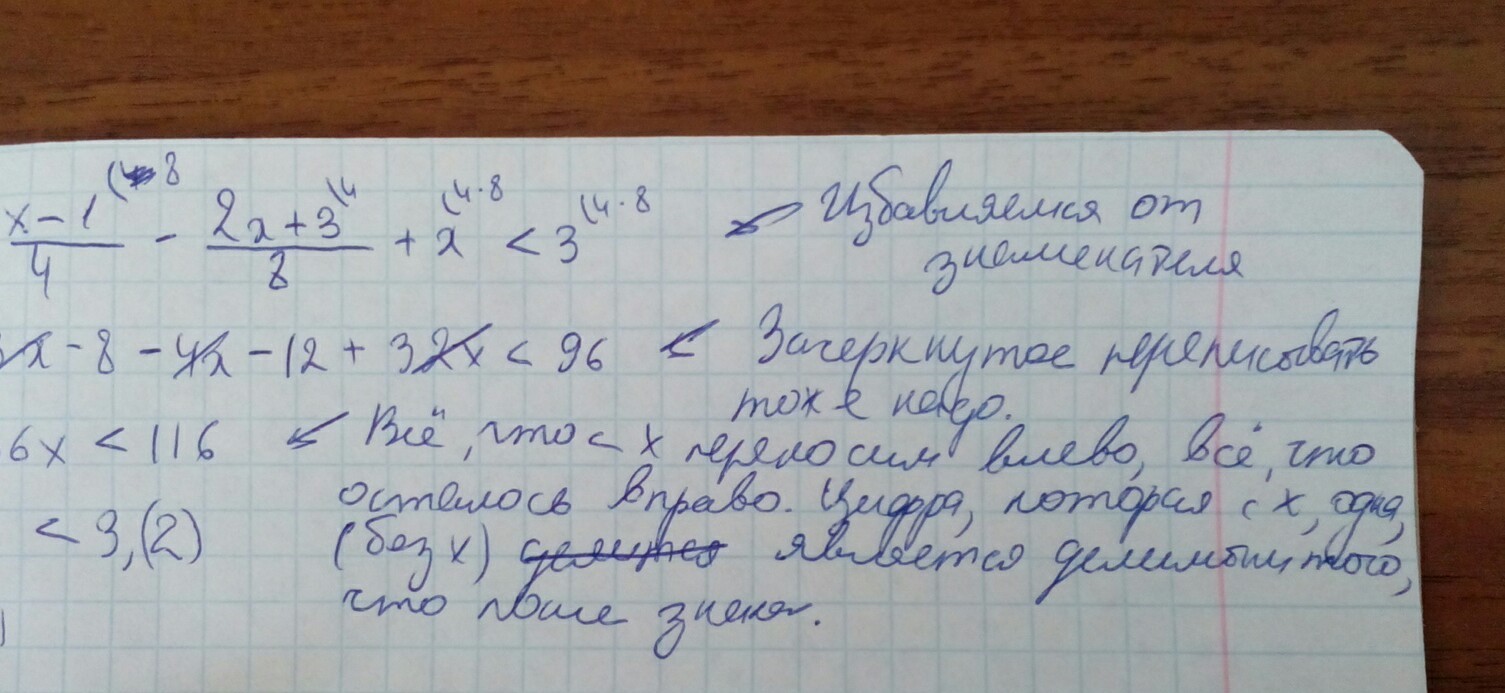 x-1(8/4 - 2x+3(4/8 + x(4·8 < 3(4·8 ← Избавляемся от
знаменателя
x - 8 - 4x - 12 + 32x < 96 ← Зачеркнутое переписывать
тоже надо.
6x < 116 ← Всё, что с x переносим влево, всё, что
осталось вправо. Цифра, которая с x, одна,
< 3,(2) (без x) является делимым того,
что после знака.